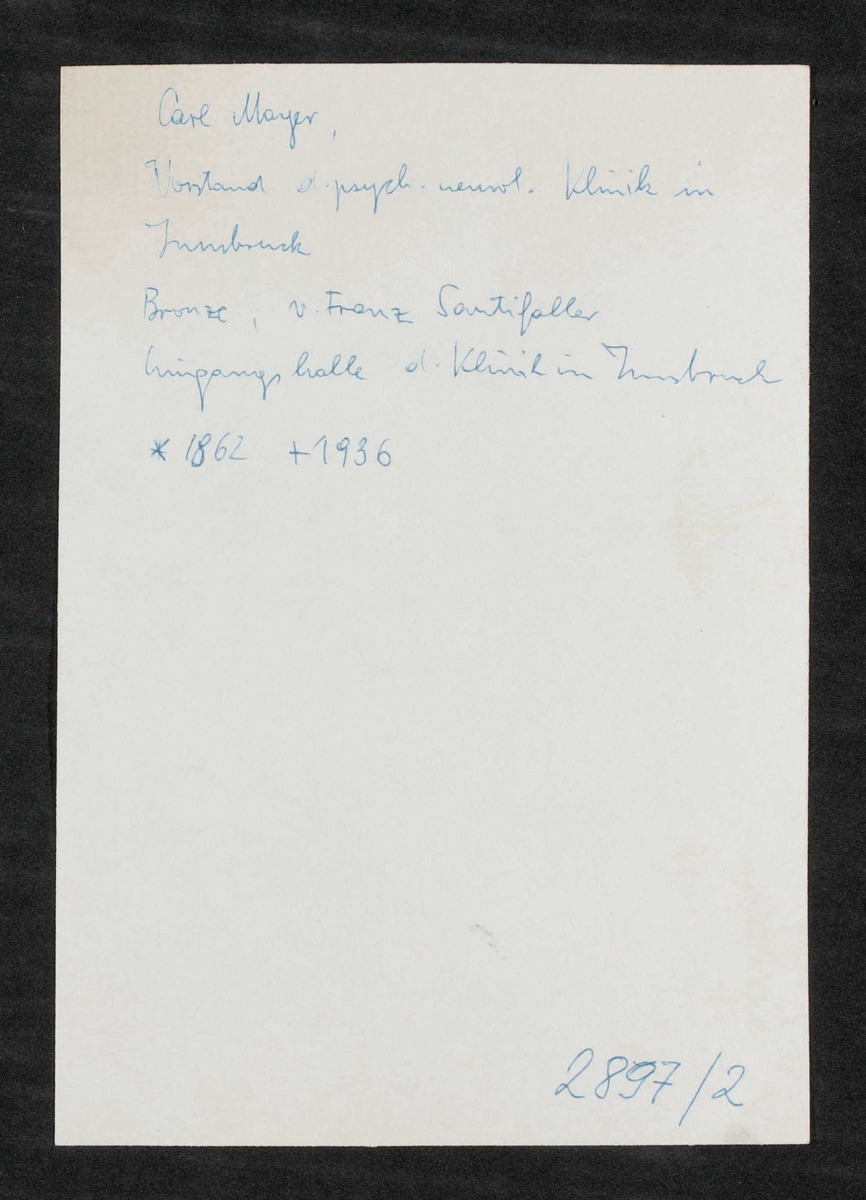 Carl Mayer,
Vorstand d. psych. neurol. Klinik in
Innsbruck
Bronze, v. Franz Santifaller
Eingangshalle d. Klinik in Innsbruck
* 1862 +1936
2897/2